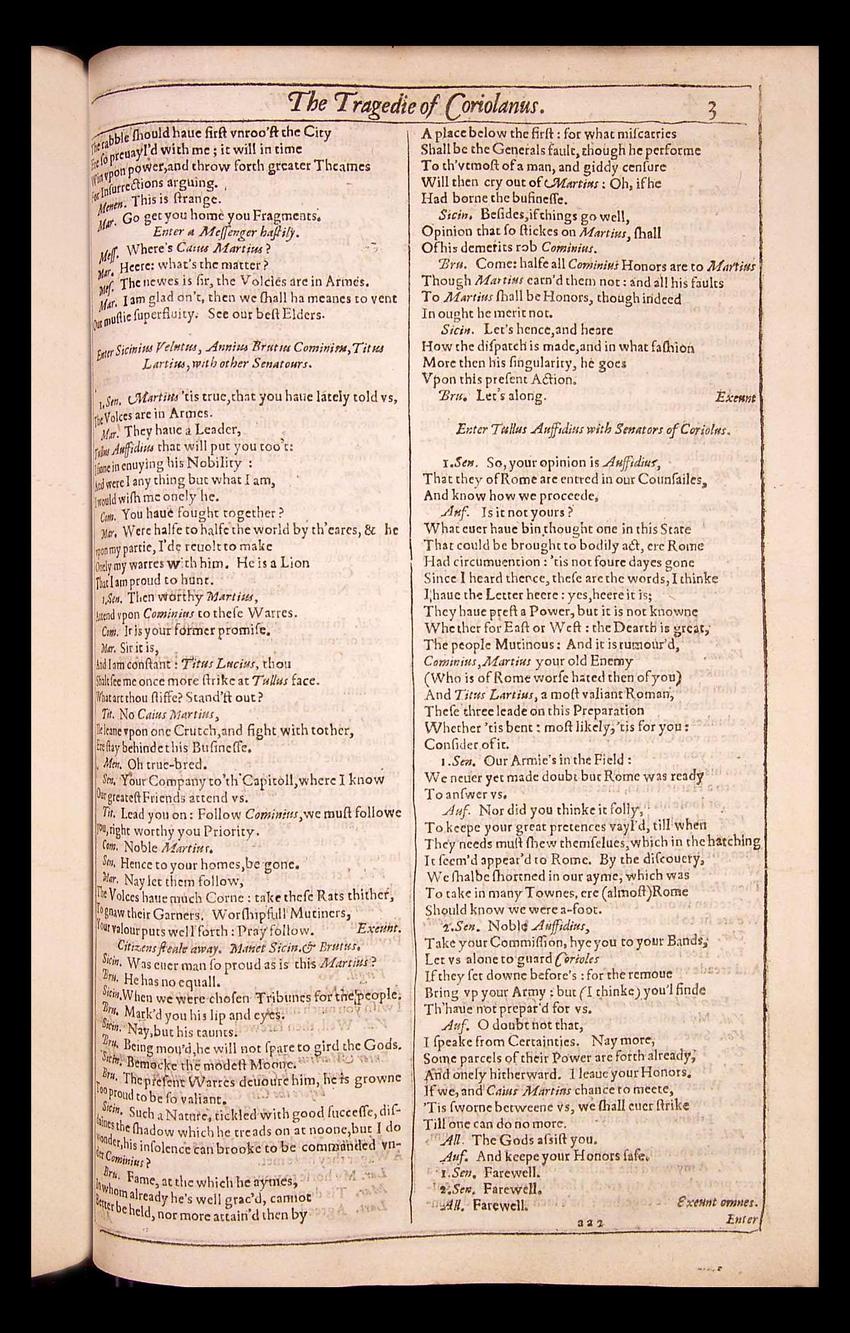 The Tragedie of Coriolanus.
3
The rabble should haue first vnroo'st the City
Ere so preuayl'd with me; it will in time
Win vpon power,and throw forth greater Theames
For Insurrections arguing.
Menen. This is strange.
Mar. Go get you home you Fragments.
Enter a Messenger hastily.
Mess. Where's Caius Martius?
Mar. Heere: what's the matter?
Mes. The newes is sir, the Volcies are in Armes.
Mar. I am glad on't, then we shall ha meanes to vent
Our mustie superfluity. See our best Elders.
Enter Sicinius Velutus, Annius Brutus Cominius, Titus
Lartius, with other Senatours.
1.Sen. Martius 'tis true,that you haue lately told vs,
The Volces are in Armes.
Mar. They haue a Leader,
Tullus Auffidius that will put you too't:
I sinne in enuying his Nobility :
And were I any thing but what I am,
I would wish me onely he.
Com. You haue fought together?
Mar. Were halfe to halfe the world by th'eares, & he
vpon my partie, I'de reuolt to make
Onely my warres with him. He is a Lion
That I am proud to hunt.
1.Sen. Then worthy Martius,
Attend vpon Cominius to these Warres.
Com. It is your former promise.
Mar. Sir it is,
And I am constant: Titus Lucius, thou
Shalt see me once more strike at Tullus face.
What art thou stiffe? Stand'st out?
Tit. No Caius Martius,
Ile leane vpon one Crutch,and fight with tother,
Ere stay behinde this Businesse.
Men. Oh true-bred.
Sen. Your Company to'th'Capitoll,where I know
Our greatest Friends attend vs.
Tit. Lead you on: Follow Cominius,we must followe
you,right worthy you Priority.
Com. Noble Martius.
Sen. Hence to your homes,be gone.
Mar. Nay let them follow,
The Volces haue much Corne: take these Rats thither,
To gnaw their Garners. Worshipfull Mutiners,
Your valour puts well forth: Pray follow. Exeunt.
Citizens steale away. Manet Sicin.& Brutus.
Sicin. Was euer man so proud as is this Martius?
Bru. He has no equall.
Sicin.When we were chosen Tribunes for the people.
Bru. Mark'd you his lip and eyes.
Sicin. Nay,but his taunts.
Bru. Being mou'd,he will not spare to gird the Gods.
Sicin. Bemocke the modest Moone.
Bru. The present Warres deuoure him, he is growne
Too proud to be so valiant.
Sicin. Such a Nature, tickled with good successe, dis-
daines the shadow which he treads on at noone,but I do
wonder,his insolence can brooke to be commanded vn-
der Cominius?
Bru. Fame, at the which he aymes,
In whom already he's well grac'd, cannot
Better be held, nor more attain'd then by
A place below the first: for what miscarries
Shall be the Generals fault, though he performe
To th'vtmost of a man, and giddy censure
Will then cry out of Martius: Oh, if he
Had borne the businesse.
Sicin. Besides,if things go well,
Opinion that so stickes on Martius, shall
Of his demerits rob Cominius.
Bru. Come: halfe all Cominius Honors are to Martius
Though Martius earn'd them not: and all his faults
To Martius shall be Honors, though indeed
In ought he merit not.
Sicin. Let's hence,and heare
How the dispatch is made,and in what fashion
More then his singularity, he goes
Vpon this present Action.
Bru. Let's along. Exeunt
Enter Tullus Auffidius with Senators of Coriolus.
1.Sen. So, your opinion is Auffidius,
That they of Rome are entred in our Counsailes,
And know how we proceede,
Auf. Is it not yours?
What euer haue bin thought one in this State
That could be brought to bodily act, ere Rome
Had circumuention: 'tis not foure dayes gone
Since I heard thence, these are the words, I thinke
I haue the Letter heere: yes,heere it is;
They haue prest a Power, but it is not knowne
Whether for East or West: the Dearth is great,
The people Mutinous: And it is rumour'd,
Cominius,Martius your old Enemy
(Who is of Rome worse hated then of you)
And Titus Lartius, a most valiant Roman,
These three leade on this Preparation
Whether 'tis bent: most likely,'tis for you:
Consider of it.
1.Sen. Our Armie's in the Field:
We neuer yet made doubt but Rome was ready
To answer vs.
Auf. Nor did you thinke it folly,
To keepe your great pretences vayl'd, till when
They needs must shew themselues,which in the hatching
It seem'd appear'd to Rome. By the discouery,
We shalbe shortned in our ayme, which was
To take in many Townes, ere (almost)Rome
Should know we were a-foot.
2.Sen. Noble Auffidius,
Take your Commission, hye you to your Bands,
Let vs alone to guard Corioles
If they set downe before's: for the remoue
Bring vp your Army: but (I thinke) you'l finde
Th'haue not prepar'd for vs.
Auf. O doubt not that,
I speake from Certainties. Nay more,
Some parcels of their Power are forth already,
And onely hitherward. I leaue your Honors.
If we, and Caius Martius chance to meete,
'Tis sworne betweene vs, we shall euer strike
Till one can do no more.
All. The Gods assist you.
Auf. And keepe your Honors safe.
1.Sen. Farewell.
2.Sen. Farewell.
All. Farewell. Exeunt omnes.
aa2 Enter